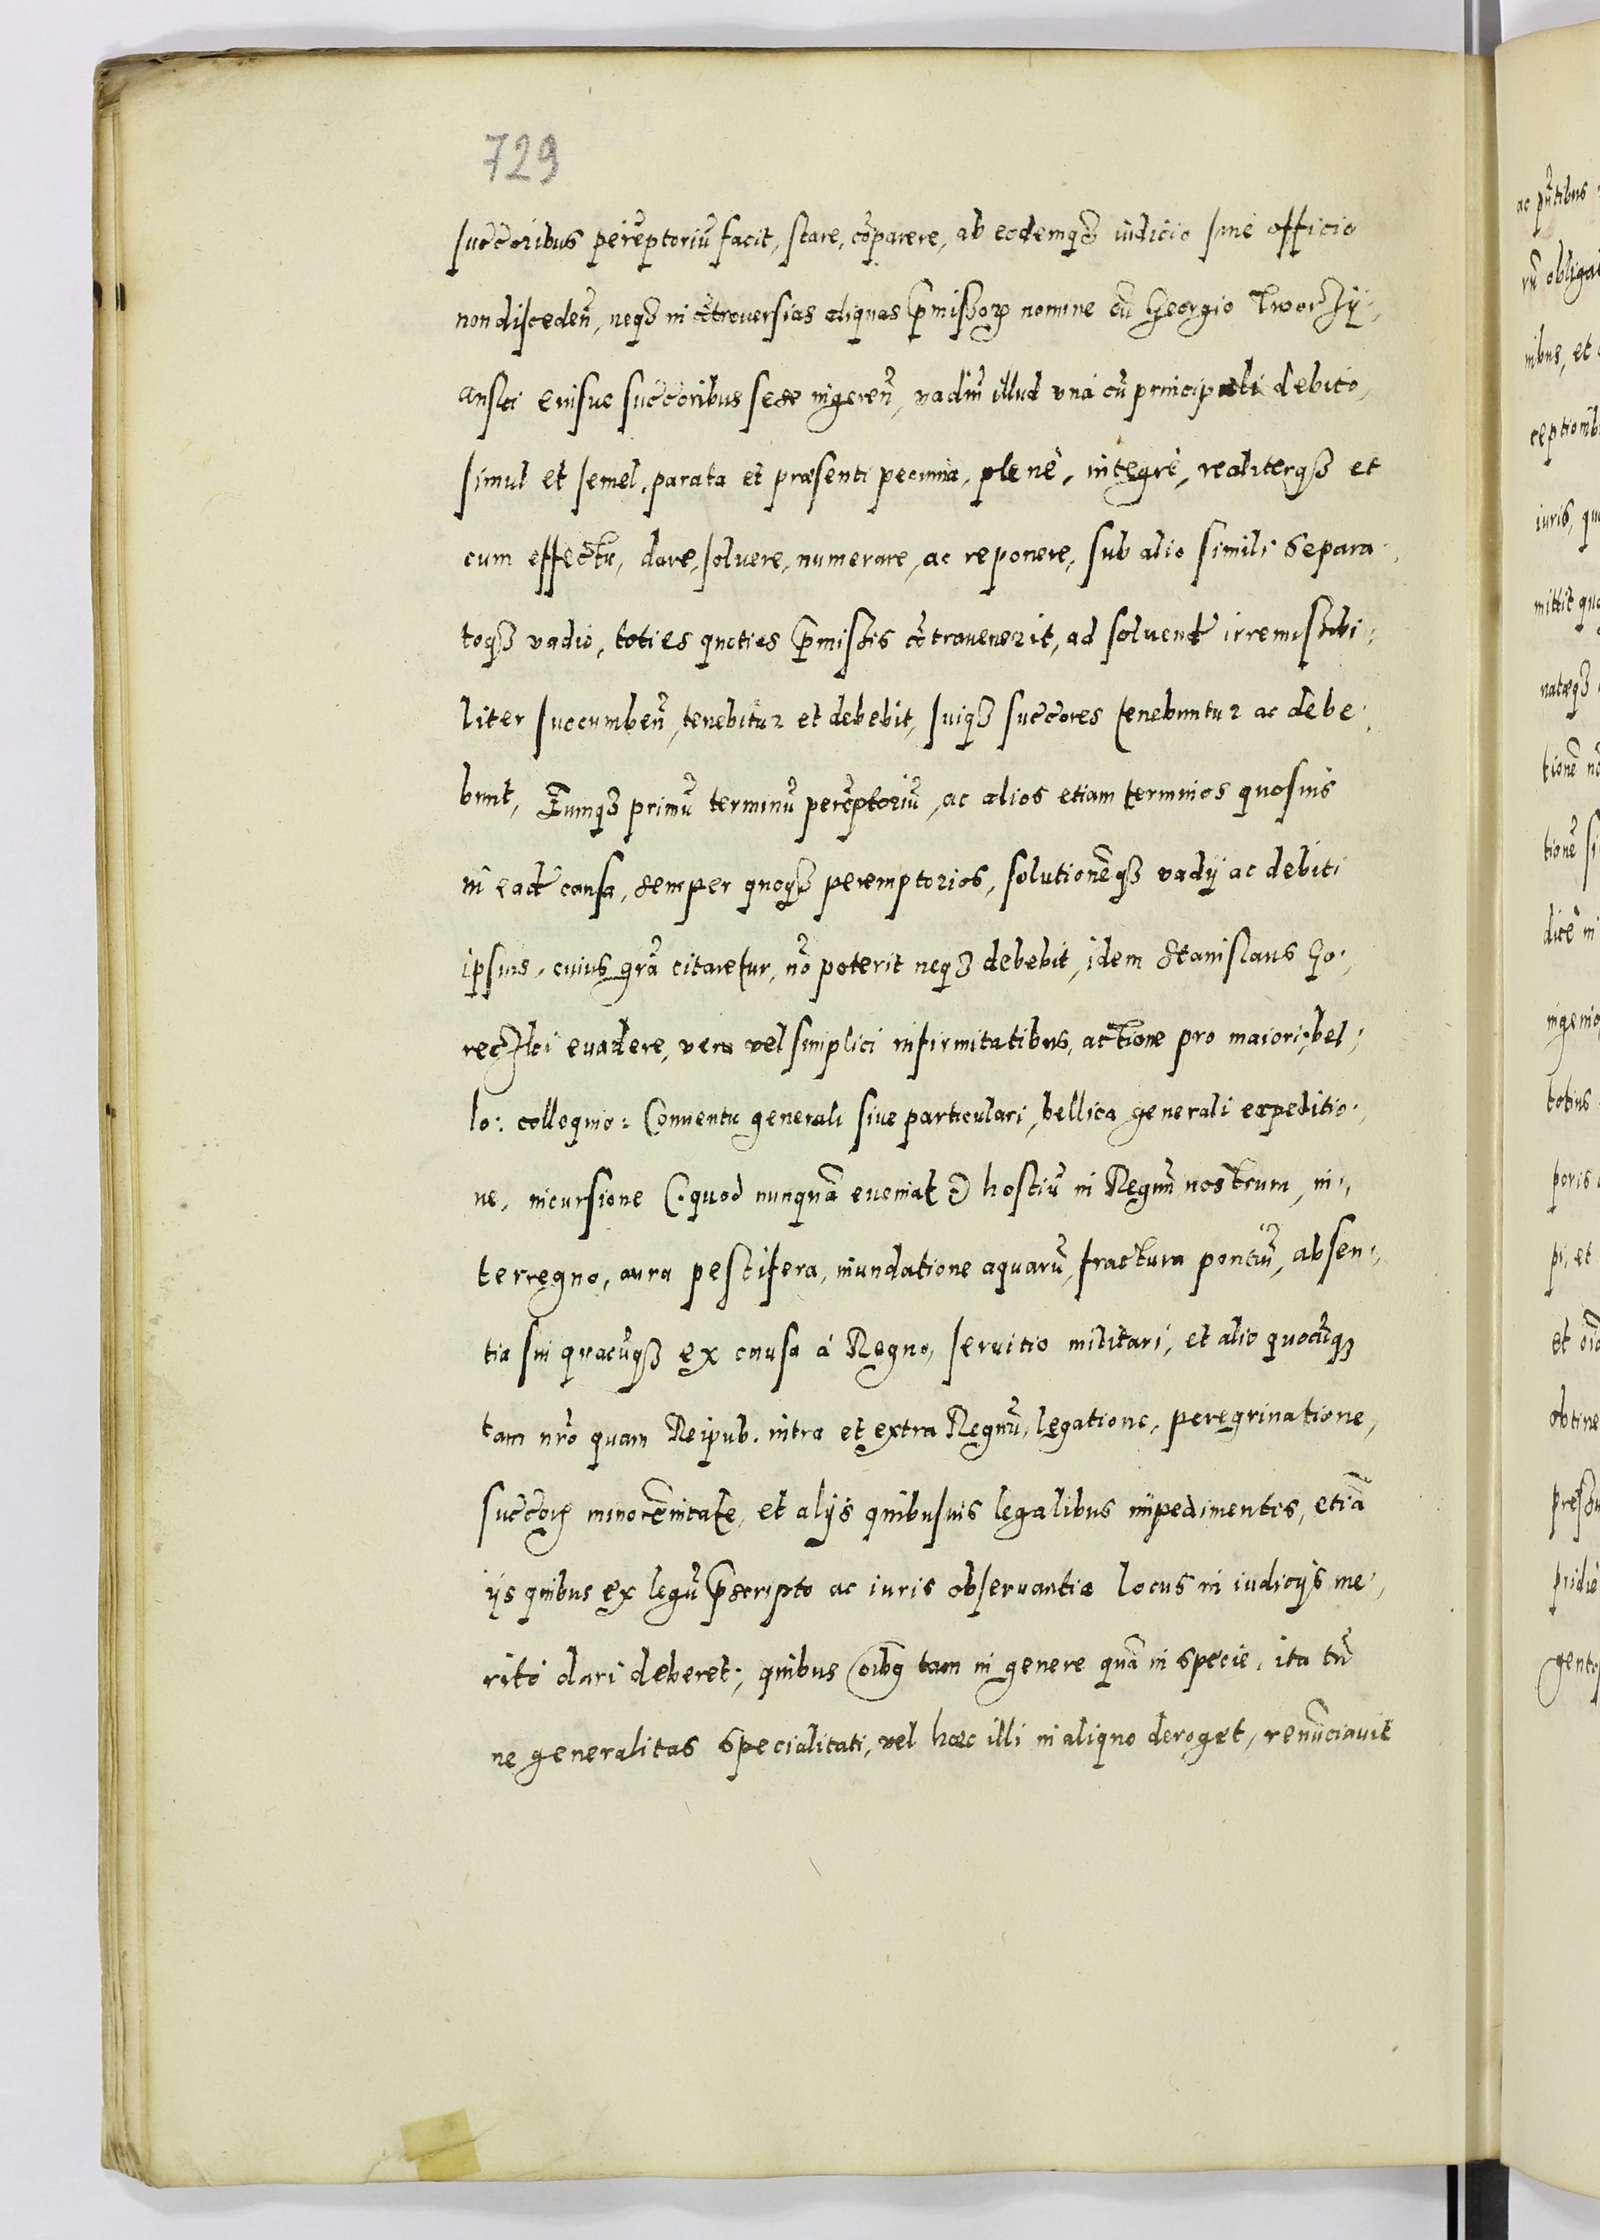 729
succ̃oribus perẽptoriũ facit, stare, cõparere, ab eodemqꝫ iudicio siue officio
non disceden̄, neqꝫ in cõtrouersias aliquas p̃missoꝝ nomine cũ Georgio Tworzÿ-
ansci eiusue succ̃oribus sese ingeren̄, vadiũ illud vnà cũ principali debito,
simul et semel, parata et præsenti pecunia, plenè, integrè, realiterqꝫ et
cum effectu, dare, soluere, numerare, ac reponere, sub alio simili separa-
toqꝫ vadio, toties quoties p̃missis cõtrauenerit, ad soluend̃ irremissibi-
liter succumben̄, tenebitur et debebit, suiqꝫ succ̃ores tenebuntur ac debe-
bunt, Eumqꝫ primũ terminũ perẽptoriũ, ac alios etiam terminos quosuis
in ead̃ causa, semper quoqꝫ peremptorios, solutionẽqꝫ vadÿ ac debiti
ipsius, cuius grã citaretur, nõ poterit neqꝫ debebit, idem Stanislaus Go-
reczkci euadere, vera vel simplici infirmitatibus, actione pro maiori: bel-
lo: colloquio: Conuentu generali siue particulari, bellica generali expeditio-
ne, incursione (: quod nunquã eueniat :) hostiũ in Regnũ nostrum, in-
terregno, aura pestifera, inundatione aquarũ, fractura pontiũ, absen-
tia sui quacũqꝫ ex causa à Regno, seruitio militari, et alio quocũqꝫ
tam nr̃o quam Reipub. intra et extra Regnũ, legatione, peregrinatione,
succ̃oꝝ minorẽnitate, et alÿs quibusuis legalibus impedimentis, etiã
ÿs quibus ex legũ p̃scripto ac iuris obseruantia locus in iudicÿs me-
ritò dari deberet; quibus oĩbꝫ tam in genere quã in specie, ita tñ
ne generalitas specialitati, vel hæc illi in aliquo deroget, renũciauit